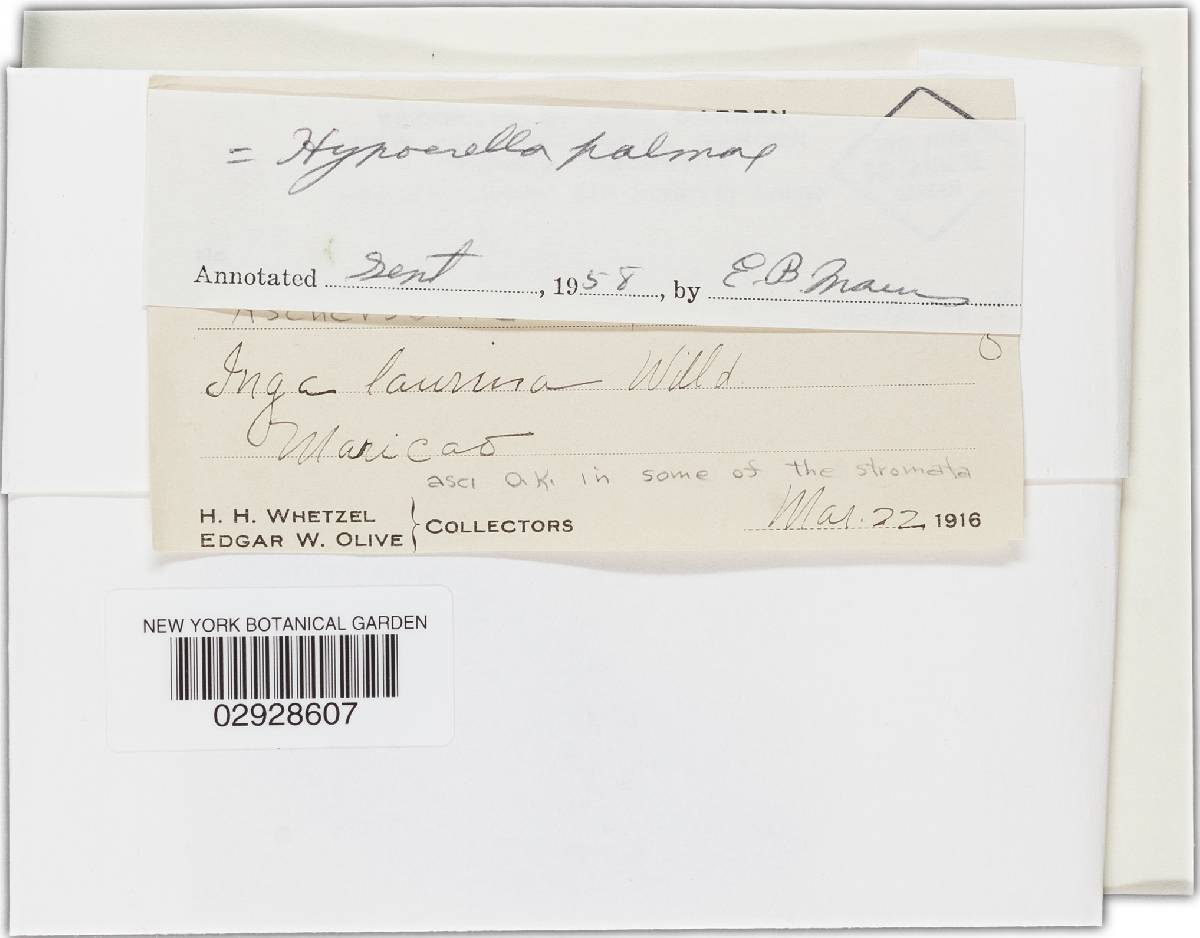 = Hypocrella palmae
Annotated Sept, 1958, by E. B. Mains
Inga laurina Willd.
Maricao
asci O.K. in some of the stromata
H. H. WHETZEL
EDGAR W. OLIVE } COLLECTORS
Mar. 22, 1916
NEW YORK BOTANICAL GARDEN
02928607